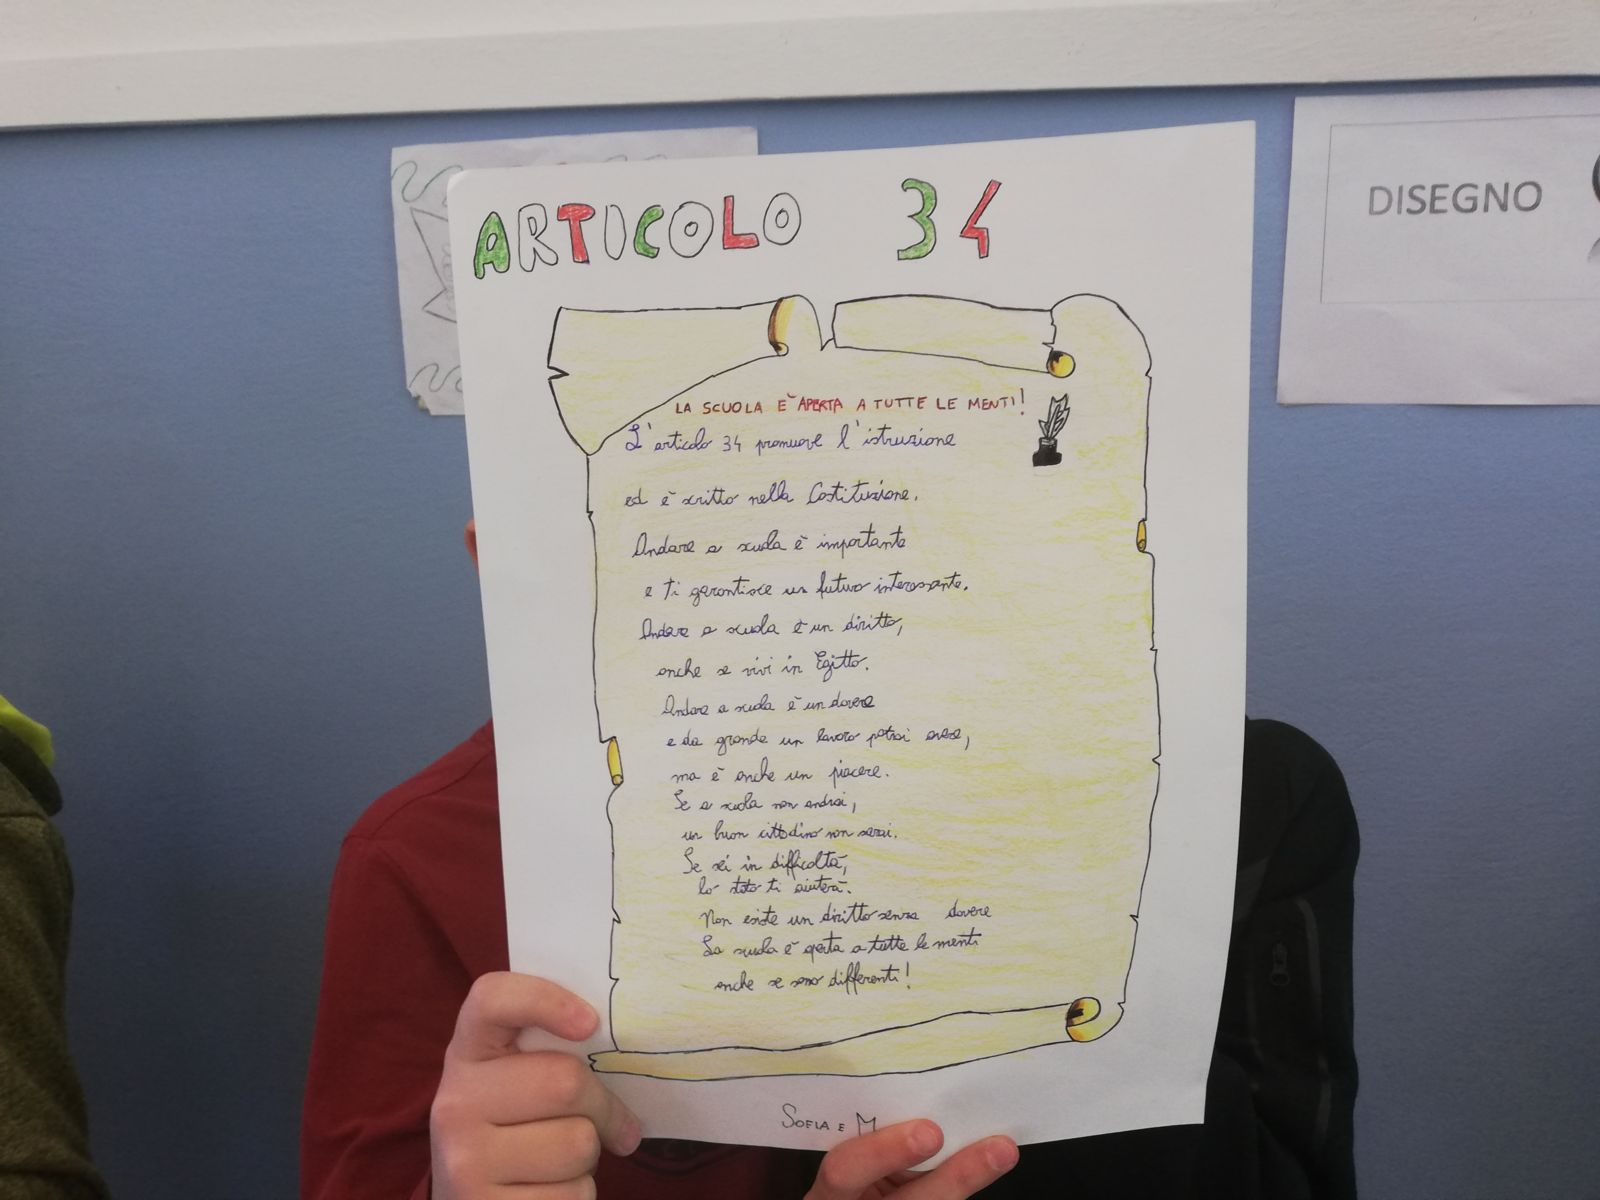 ARTICOLO 34
DISEGNO
LA SCUOLA È APERTA A TUTTE LE MENTI!
L'articolo 34 promuove l'istruzione
ed è scritto nella Costituzione.
Andare a scuola è importante
e ti garantisce un futuro interessante.
Andare a scuola è un diritto,
anche se vivi in Egitto.
Andare a scuola è un dovere
e da grande un lavoro potrai avere,
ma è anche un piacere.
Se a scuola non andrai,
un buon cittadino non sarai.
Se sei in difficoltà,
lo stato ti aiuterà.
Non esiste un diritto senza dovere
La scuola è aperta a tutte le menti
anche se sono differenti!
SOFIA E M